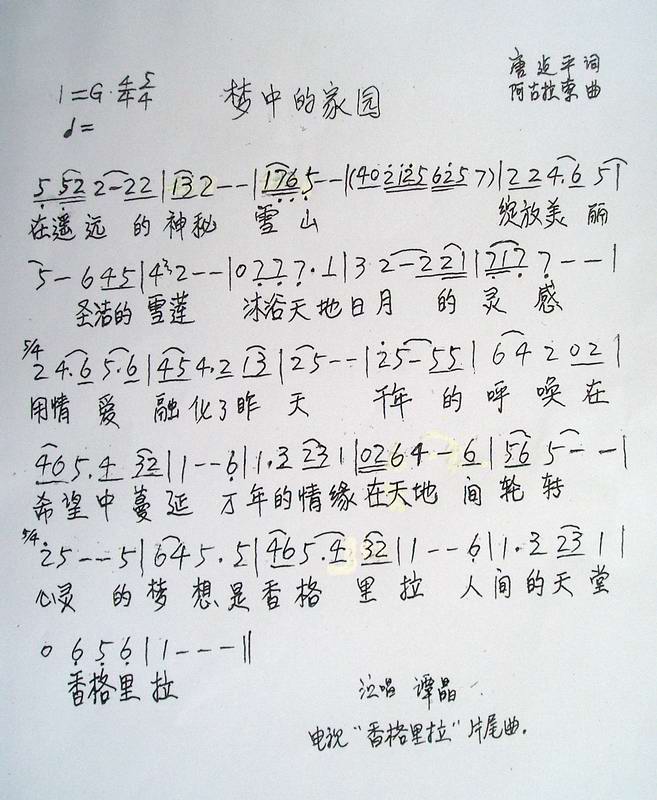 1=G 4/4 5/4 梦中的家园 唐 平 词
♩= 阿古拉泰 曲
5 52 2-22|132--|1765--|(4021256257)|224.65|
在遥远 的神秘 雪 山 绽放美丽
5-645|4³2--|0777.1|32-221|7177--|
圣洁的雪莲 沐浴天地日月 的灵感
5/4 24.65.6|454.213|25--|25-55|64202|
用情爱 融化了昨天 千年的呼唤在
465.432|11--6|1.3231|0264-6|565--|
希望中蔓延 万年的情缘在天地 间轮转
5/4 25--5|645.5|465.432|11--6|1.3231|
心灵 的梦想是香格里拉 人间的天堂
0656|1---||
香格里拉 演唱 谭晶
电视“香格里拉”片尾曲.